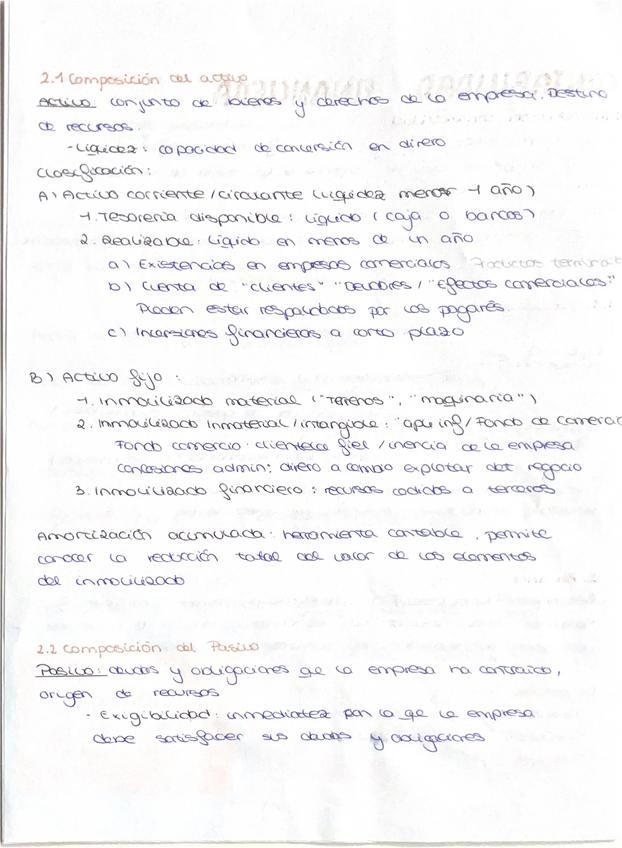 2.1 Composición del activo
Activo: conjunto de bienes y derechos de la empresa. Destino
de recursos.
- Liquidez: capacidad de conversión en dinero
Clasificación:
A) Activo corriente/circulante (liquidez menor 1 año)
1. Tesorería disponible: líquido (caja o bancos)
2. Realizable: líquido en menos de un año
a) Existencias en empresas comerciales Productos terminat
b) Cuenta de "clientes" "Deudores / "Efectos comerciales"
Pueden estar respaldados por los pagarés.
c) Inversiones financieras a corto plazo
B) Activo fijo:
1. Inmovilizado material ("Terrenos", "maquinaria")
2. Inmovilizado Inmaterial/intangible: "apli inf/Fondo de comerc
Fondo comercio: clientela fiel / inercia de la empresa
concesiones admin: dinero a cambio explotar det negocio
3. Inmovilizado financiero: recursos cedidos a terceros
Amortización acumulada: herramienta contable, permite
conocer la reducción total del valor de los elementos
del inmovilizado
2.2 Composición del Pasivo
Pasivo: deudas y obligaciones qe la empresa ha contraído,
origen de recursos
- Exigibilidad: inmediatez con la qe la empresa
debe satisfacer sus deudas y obligaciones